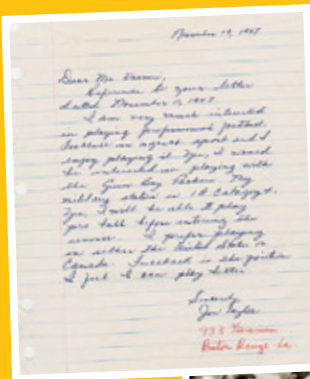 November 19, 1957
Dear Mr. Vainisi,
Reference to your letter
dated November 17, 1957
I am very much interested
in playing professional football.
Football is a great sport and I
enjoy playing it. Yes, I would
be interested in playing with
the Green Bay Packers. My
military status is 1A Category.
Yes, I will be able to play
pro ball before entering the
service. I prefer playing
in either the United States or
Canada. Fullback is the position
I feel I can play better.
Sincerely
Jim Taylor
Baton Rouge La.